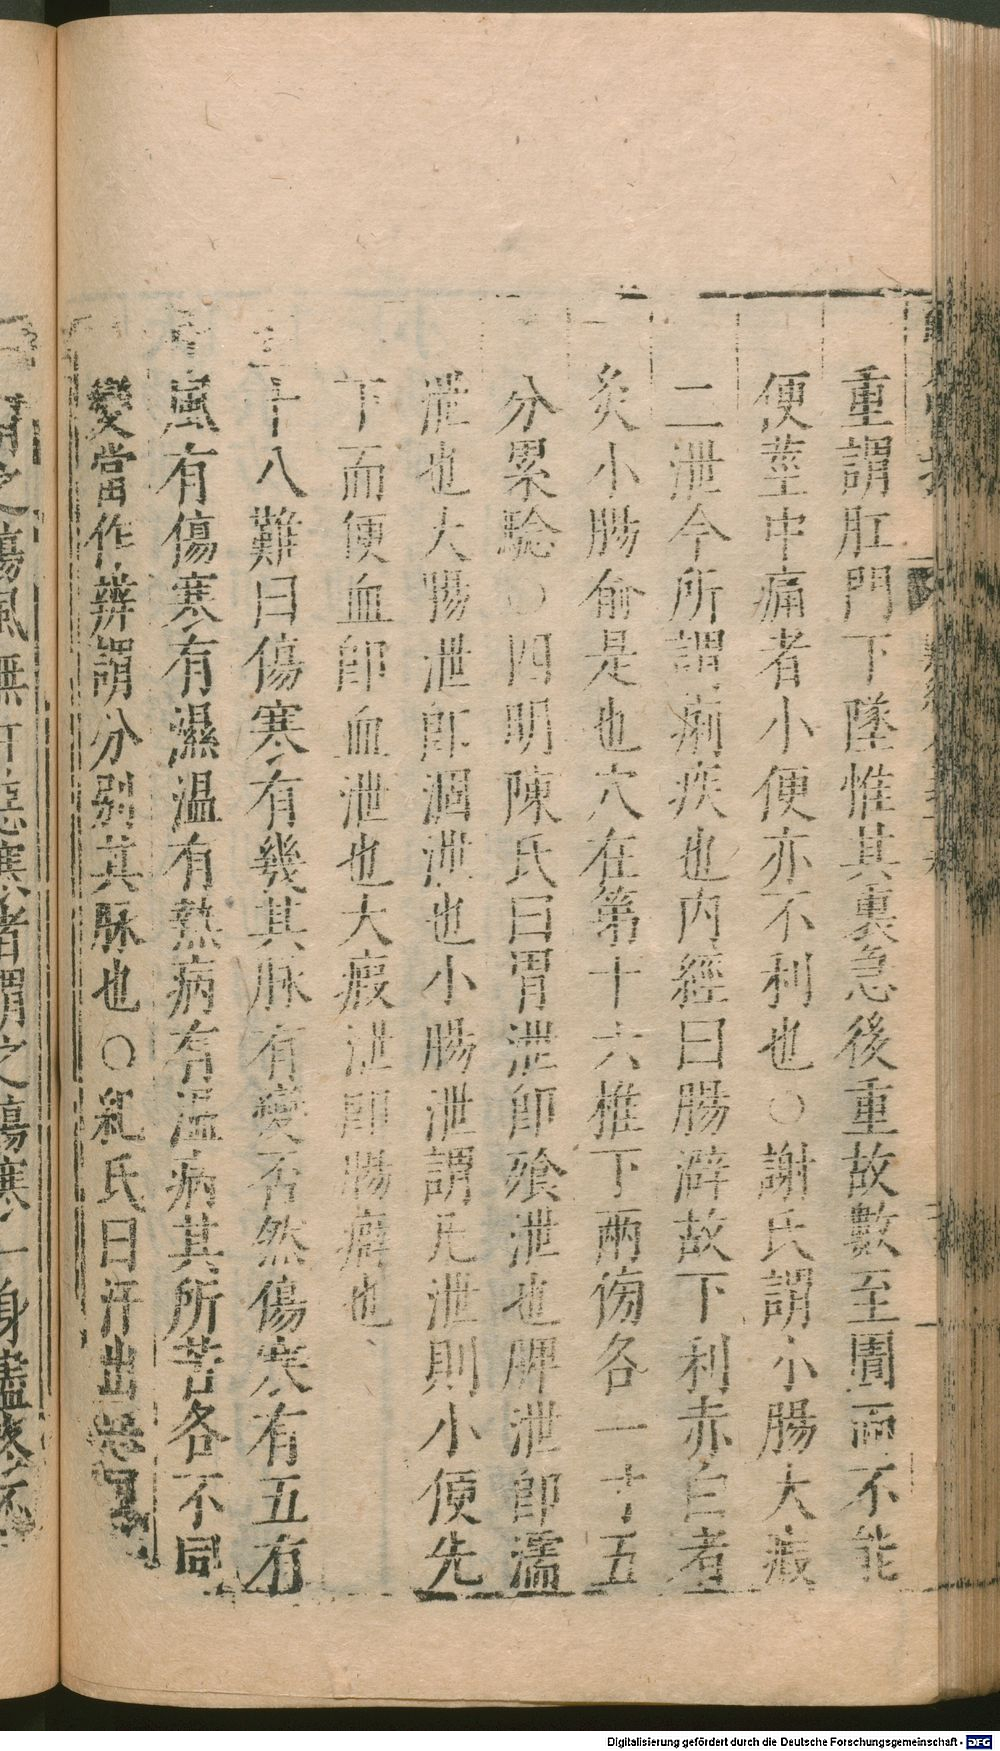 重謂肛門下墜惟其裏急後重故數至圊而不能
便莖中痛者小便亦不利也○謝氏謂小腸大瘕
二泄今所謂痢疾也內經曰腸澼故下利赤白者
灸小腸俞是也穴在第十六椎下兩傍各一寸五
分累驗○四明陳氏曰胃泄卽飧泄也脾泄卽濡
泄也大腸泄卽洞泄也小腸泄謂凡泄則小便先
下而便血卽血泄也大瘕泄卽腸癖也
十八難曰傷寒有幾其脉有變否然傷寒有五有
風有傷寒有濕溫有熱病有溫病其所苦各不同
變當作辨謂分別其脉也○紀氏曰汗出
之傷風無汗惡寒者謂之傷寒一身盡
Digitalisierung gefördert durch die Deutsche Forschungsgemeinschaft - DFG